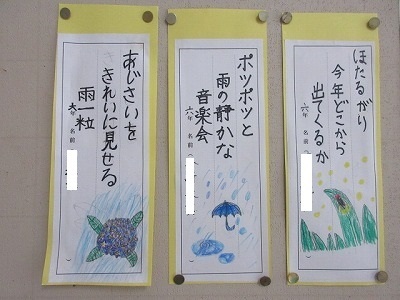 あじさいを
きれいに見せる
雨一粒
六年 名前
ポツポツと
雨の静かな
音楽会
六年 名前
ほたるがり
今年どこから
出てくるか
六年 名前